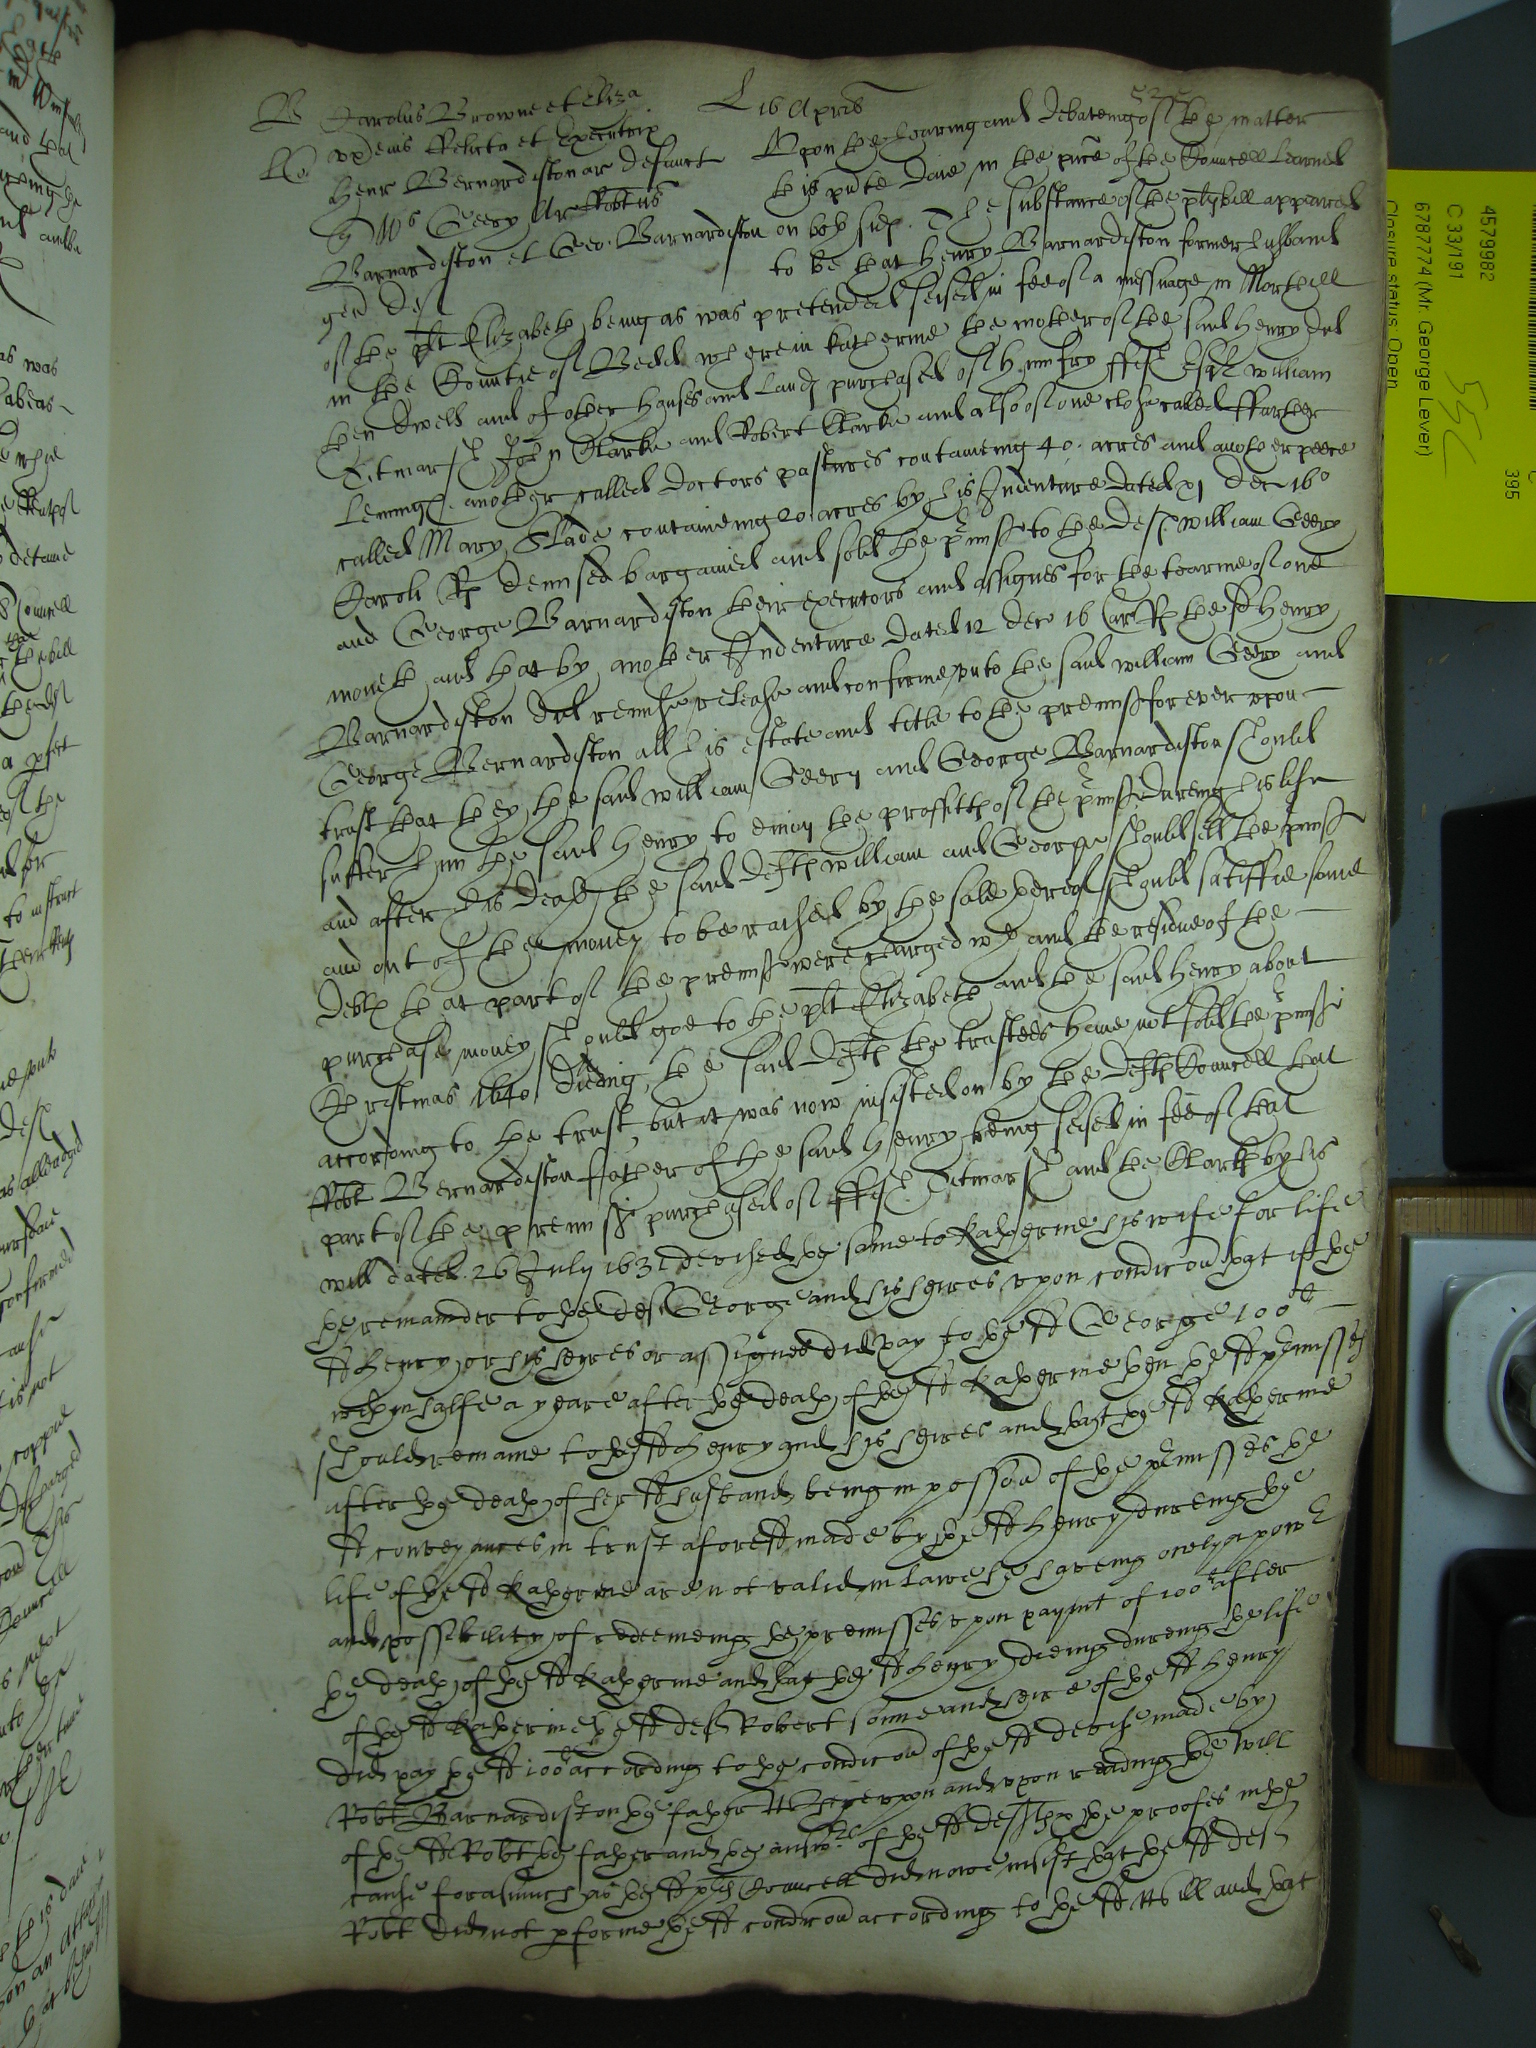 B Carolus Browne et Eliza
ux eius Relicta et Executrix
Henr Bernardiston ar defunct
Geery Ar Robtus
Barnardiston et Geo: Barnardiston
gen def
L 16 Apris
Upon the hearing and debateing of the matter
this pnte daie in the pnce of the Councell learned
on both sides. The substance of the plts bill appeared
to be that Henry Barnardiston former husband
of the plt Elizabeth being as was pretended seised in fee of a messuage in Northill
in the Countie of Bedd wherein Katherine the mother of the said Henry did
then dwell and of other houses and lands purchased of Humfry ffish Esqr William
Titmarsh John Clarke and Robert Clarke and also of one close called ffarther
another called Doctors pastures containeing 40. acres and another peece
called Mary Slade containeing 20 acres by his Indenture dated xj Dec 16o
Caroli Rs demised bargained and sold the pmiss to the defts William Geery
and George Barnardiston their executors and assignes for the tearme of one
moneth and that by another Indenture dated 12 Dec 16 Car Rs the sd Henry
Barnardiston did remise release and confirme unto the said William Geery and
George Bernardiston all his estate and title to the premiss for ever upon
trust that they the said William Geery and George Barnardiston should
suffer him the said Henry to enioy the proffitts of the pmiss dureing his life
and after his death the said defts William and George should sell the pmiss
and out of the money to be raised by the sale thereof should satisfie some
debts that part of the premiss were charged wth and the residue of the
purchase money should goe to the plt Elizabeth and the said Henry about
Christmas 1640 dieing the said defts the trustees have not sold the pmiss
according to the trust, but it was now insisted on by the defts Councell that
Robt Bernardiston father of the said Henry being seised in fee of that
part of the premiss purchased of ffish Titmarsh and the Clarks by his
will dated 26 July 1631 devised the same to Katherine his wife for life
the remainder to the deft George and his heires upon condicon that if the
sd Henry or his heires or assignes did pay to the sd George 100li
within halfe a yeare after the death of the sd Katherine then the sd pmisses
should remaine to the sd Henry and his heires and that the sd Katherine
after the death of her sd husband being in possion of the pmisses the
sd conveyances in trust aforesd made by the sd Henry dureing the
life of the sd Katherine are not valid in lawe he haveing onely a powr
and possibility of redeemeing the premisses upon paymt of 100li after
the death of the sd Katherine and that the sd Henry dieing dureing the life
of the sd Katherine the sd deft Robert sonne and heire of the sd Henry
did pay the sd 100li according to the condicon of the sd devise made by
Robt Barnardiston the father Whereupon and upon reading the Will
of the sd Robt the father and the answre of the sd defts the proofes in the
cause forasmuch as the sd plts Councell did nowe insist that the sd deft
Robt did not pforme the sd condicon according to the sd Will and that
4579982
C 33/191
6787774 (Mr. George Lever)
Closure status: Open
395